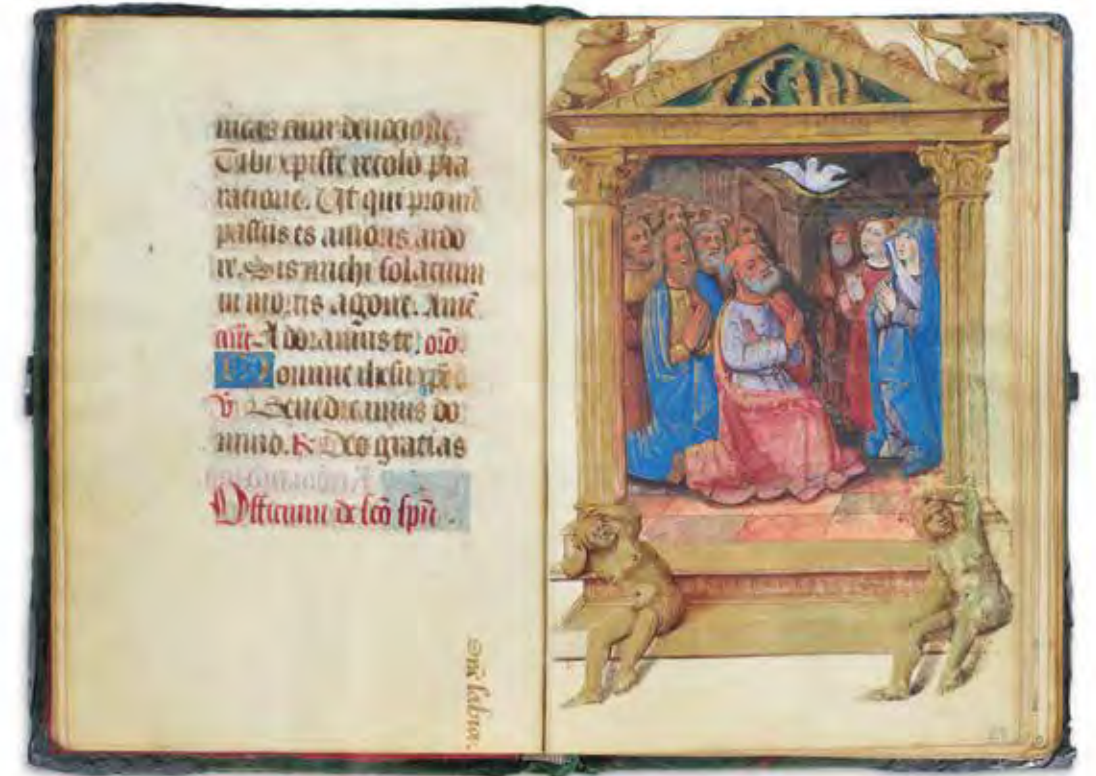 nicas cum deuocione.
Tibi xpiste recolo pia
ratione. Ut qui pro me
passus es amoris ardo
re. Sis michi solacium
in mortis agone. Amē
añt. Adoramus te. orō.
Domine ihesu xpē
v̄ Benedicamus do
mino. R Deo gratias
Officium de sc̄o spū.
Dñe labia.